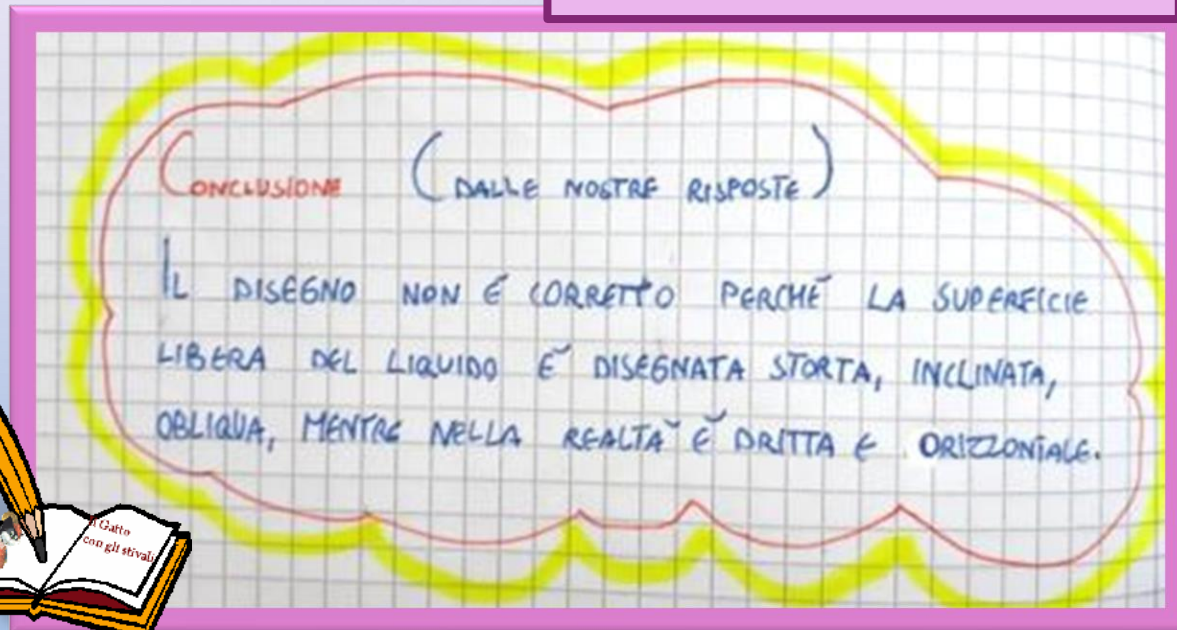 CONCLUSIONE (DALLE NOSTRE RISPOSTE)
IL DISEGNO NON É CORRETTO PERCHÉ LA SUPERFICIE
LIBERA DEL LIQUIDO É DISEGNATA STORTA, INCLINATA,
OBLIQUA, MENTRE NELLA REALTÀ É DRITTA E ORIZZONTALE.
Il Gatto
con gli stivali